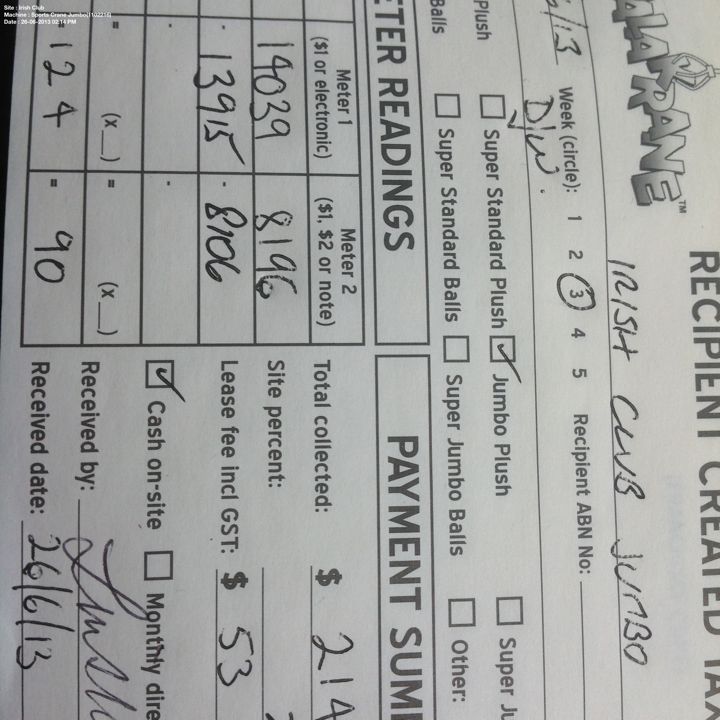 Site : Irish Club
Machine : Sports Crane Jumbo(1102216)
Date : 26-06-2013 02:14 PM
RECIPIENT CREATED TAX
ALAKRANE™
IRISH CLUB JUMBO
6/13 Week (circle): 1 2 3 4 5 Recipient ABN No:
D/W.
Plush Super Standard Plush Jumbo Plush Super Ju
Balls Super Standard Balls Super Jumbo Balls Other:
ETER READINGS
PAYMENT SUMM
Meter 1 Meter 2
($1 or electronic) ($1, $2 or note)
14039 8196
- 13915 - 8106
- -
= (x__) = (x__)
= 124 = 90
Total collected: $ 214
Site percent:
Lease fee incl GST: $ 53
Cash on-site Monthly dire
Received by:
Received date: 26/6/13